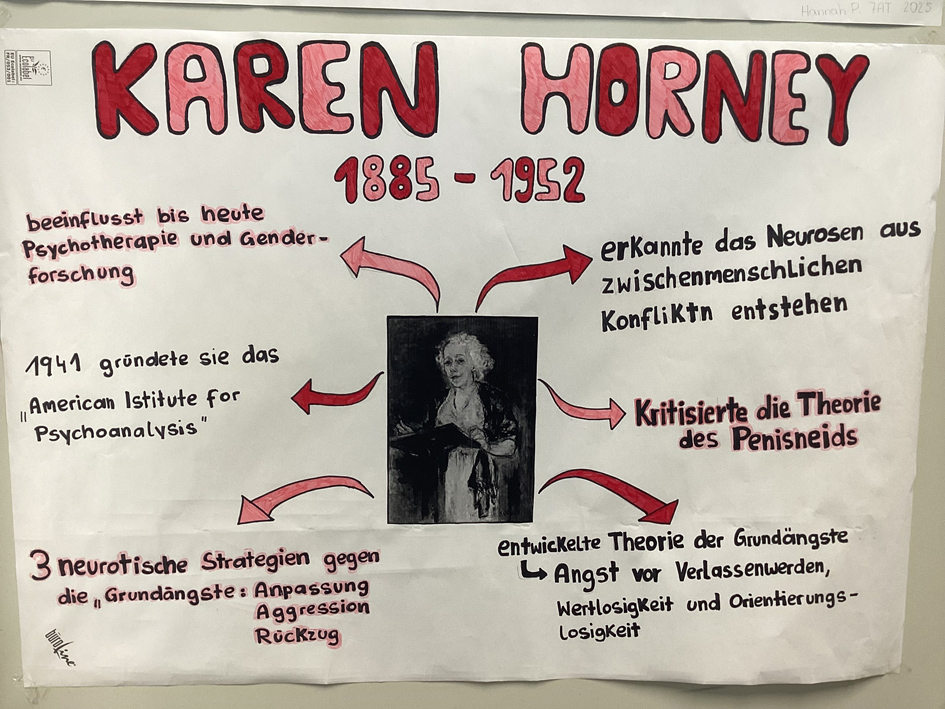 Hannah P. 7AT 2025
KAREN HORNEY
1885 - 1952
beeinflusst bis heute
Psychotherapie und Gender-
forschung
erkannte das Neurosen aus
zwischenmenschlichen
Konfliktn entstehen
1941 gründete sie das
„American Istitute for
Psychoanalysis"
Kritisierte die Theorie
des Penisneids
3 neurotische Strategien gegen
die „Grundängste: Anpassung
Aggression
Rückzug
entwickelte Theorie der Grundängste
↳ Angst vor Verlassenwerden,
Wertlosigkeit und Orientierungs-
losigkeit
büroLine
Ecolabel